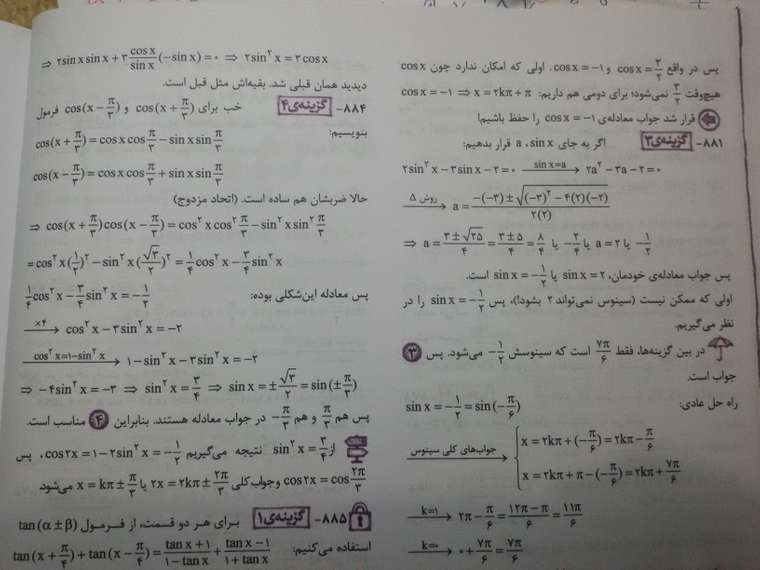 پس در واقع cosx = ۳/۲ و cosx = −۱. اولی که امکان ندارد چون cosx
هیچ‌وقت ۳/۲ نمی‌شود؛ برای دومی هم داریم: cosx = −۱ ⇒ x = ۲kπ + π
قرار شد جواب معادله‌ی cosx = −۱ را حفظ باشیم!
۸۸۱- گزینه‌ی ۳ اگر به جای sinx، a قرار بدهیم:
۲sin²x − ۳sinx − ۲ = ۰ —sinx=a→ ۲a² − ۳a − ۲ = ۰
—روش Δ→ a = (−(−۳) ± √((−۳)² − ۴(۲)(−۲))) / ۲(۲)
⇒ a = (۳ ± √۲۵)/۴ = (۳ ± ۵)/۴ = ۸/۴ یا −۲/۴ یا a = ۲ یا −۱/۲
پس جواب معادله‌ی خودمان، sinx = ۲ یا sinx = −۱/۲ است.
اولی که ممکن نیست (سینوس نمی‌تواند ۲ بشود!)، پس sinx = −۱/۲ را در
نظر می‌گیریم.
در بین گزینه‌ها، فقط ۷π/۶ است که سینوسش −۱/۲ می‌شود. پس ۳
جواب است.
راه حل عادی: sinx = −۱/۲ = sin(−π/۶)
—جواب‌های کلی سینوس→ { x = ۲kπ + (−π/۶) = ۲kπ − π/۶
x = ۲kπ + π − (−π/۶) = ۲kπ + ۷π/۶
—k=۱→ ۲π − π/۶ = (۱۲π − π)/۶ = ۱۱π/۶
—k=۰→ ۰ + ۷π/۶ = ۷π/۶
⇒ ۲sinx sinx + ۳ (cosx/sinx)(−sinx) = ۰ ⇒ ۲sin²x = ۳cosx
دیدید همان قبلی شد. بقیه‌اش مثل قبل است.
۸۸۴- گزینه‌ی ۴ خب برای cos(x + π/۳) و cos(x − π/۳) فرمول
بنویسیم:
cos(x + π/۳) = cosx cos π/۳ − sinx sin π/۳
cos(x − π/۳) = cosx cos π/۳ + sinx sin π/۳
حالا ضربشان هم ساده است. (اتحاد مزدوج)
⇒ cos(x + π/۳)cos(x − π/۳) = cos²x cos² π/۳ − sin²x sin² π/۳
= cos²x(۱/۲)² − sin²x(√۳/۲)² = ۱/۴ cos²x − ۳/۴ sin²x
پس معادله این‌شکلی بوده: ۱/۴ cos²x − ۳/۴ sin²x = −۱/۲
—×۴→ cos²x − ۳sin²x = −۲
—cos²x=۱−sin²x→ ۱ − sin²x − ۳sin²x = −۲
⇒ −۴sin²x = −۳ ⇒ sin²x = ۳/۴ ⇒ sinx = ±√۳/۲ = sin(±π/۳)
پس هم π/۳ و هم −π/۳ در جواب معادله هستند. بنابراین ۴ مناسب است.
از sin²x = ۳/۴ نتیجه می‌گیریم cos۲x = ۱ − ۲sin²x = −۱/۲، پس
cos۲x = cos ۲π/۳ و جواب کلی ۲x = ۲kπ ± ۲π/۳ یا x = kπ ± π/۳ می‌شود.
۸۸۵- گزینه‌ی ۱ برای هر دو قسمت، از فرمول tan(α ± β)
استفاده می‌کنیم: tan(x + π/۴) + tan(x − π/۴) = (tanx + ۱)/(۱ − tanx) + (tanx − ۱)/(۱ + tanx)